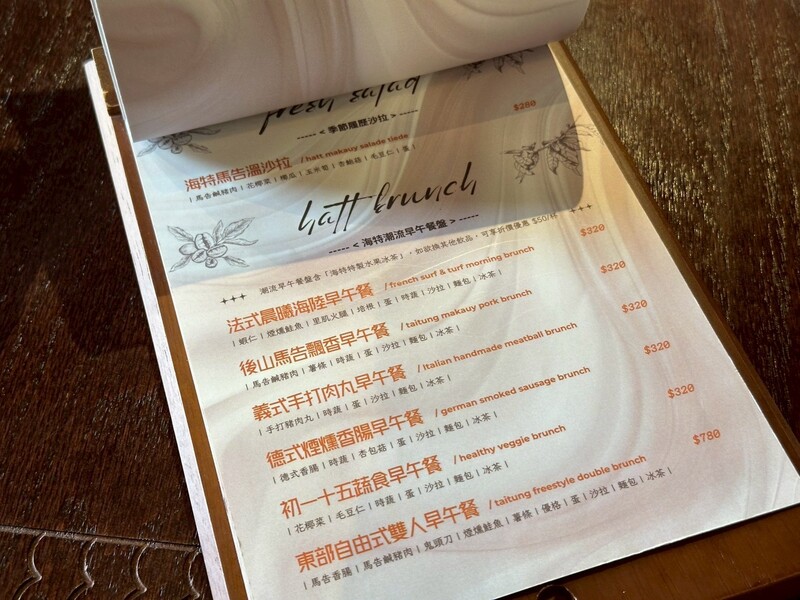 fresh salad
----- < 季節履歷沙拉 > -----
海特馬告溫沙拉 / hatt makauy salade tiede $280
| 馬告鹹豬肉 | 花椰菜 | 櫛瓜 | 玉米筍 | 杏鮑菇 | 毛豆仁 | 蛋 |
hatt brunch
----- < 海特潮流早午餐盤 > -----
潮流早午餐盤含「海特特製水果冰茶」，如欲換其他飲品，可享折價優惠 $50/杯
法式晨曦海陸早午餐 / french surf & turf morning brunch $320
| 蝦仁 | 煙燻鮭魚 | 里肌火腿 | 培根 | 蛋 | 時蔬 | 沙拉 | 麵包 | 冰茶 |
後山馬告飄香早午餐 / taitung makauy pork brunch $320
| 馬告鹹豬肉 | 薯條 | 時蔬 | 蛋 | 沙拉 | 麵包 | 冰茶 |
義式手打肉丸早午餐 / Italian handmade meatball brunch $320
| 手打豬肉丸 | 時蔬 | 蛋 | 沙拉 | 麵包 | 冰茶 |
德式煙燻香腸早午餐 / german smoked sausage brunch $320
| 德式香腸 | 時蔬 | 杏包菇 | 蛋 | 沙拉 | 麵包 | 冰茶 |
初一十五蔬食早午餐 / healthy veggie brunch $320
| 花椰菜 | 毛豆仁 | 時蔬 | 蛋 | 沙拉 | 麵包 | 冰茶 |
東部自由式雙人早午餐 / taitung freestyle double brunch $780
| 馬告香腸 | 馬告鹹豬肉 | 鬼頭刀 | 煙燻鮭魚 | 薯條 | 優格 | 蛋 | 沙拉 | 麵包 | 冰茶 |